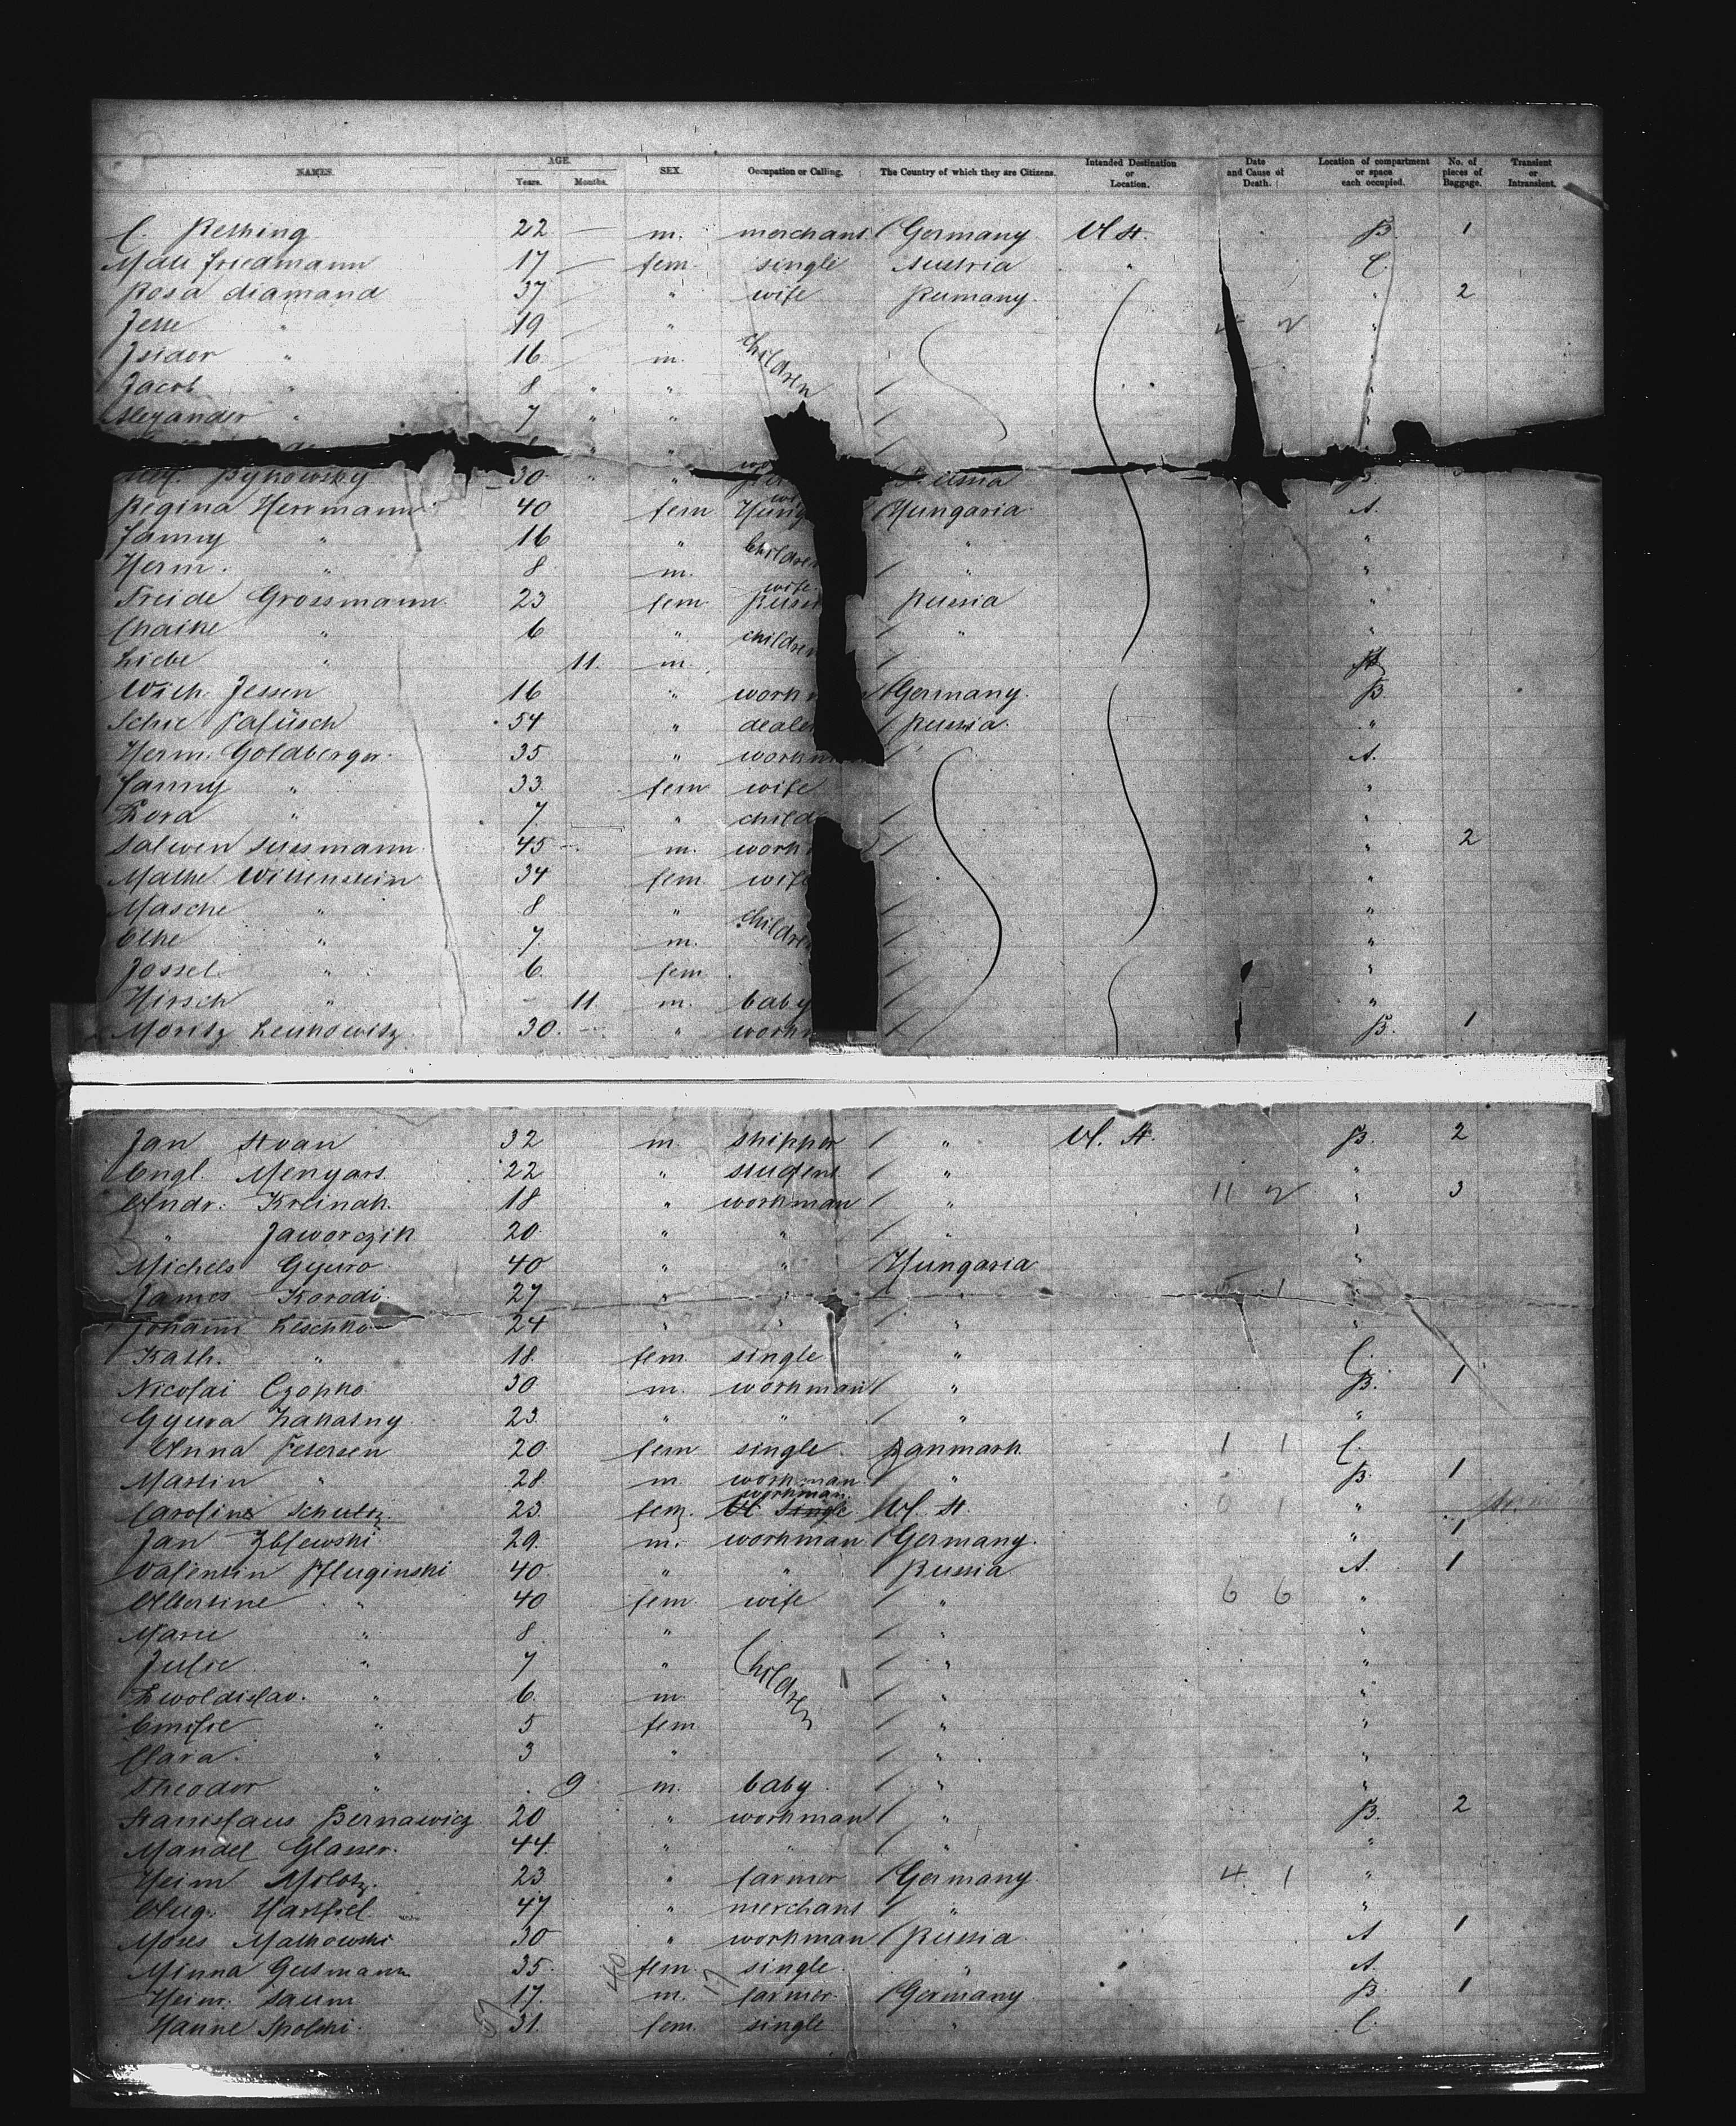 NAMES. AGE. Years. Months. SEX. Occupation or Calling. The Country of which they are Citizens. Intended Destination or Location. Date and Cause of Death. Location of compartment or space each occupied. No. of pieces of Baggage. Transient or Intransient.
C. Rething 22 — m. merchant / Germany U St. B. 1
Mali Friedmann 17 — fem. single Austria " C.
Rosa diamand 37 " wife Rumany. " 2
Jesse " 19 " "
Isidor " 16 m. children "
Jacob " 8 " " / "
Alexander " 7 " " / "
Bykowsky 30 " Russia B.
Regina Herrmann 40 fem / Hungaria A.
Fanny " 16 " children " "
Herm. " 8 m. / " "
Freide Grossmann 23 fem wife Russia "
Chaike " 6 " children / " "
Liebe " 11 m. /
Wilh. Jessen 16 " / Germany. B.
Schie 54 " / Russia. "
Herm. Goldberger 35 " / A.
Fanny " 33 fem wife "
" 7 " / "
Salwen Sussmann 45 — m. / " 2
Malke Wittenstein 34 fem. wife "
Masche " 8 " children / "
Elke " 7 m. / "
Jossel " 6 fem / "
Hirsch " 11 m. baby / "
Moritz Leukowitz 30. " / B. 1
Jan 32 m. shipper / " U. St. B. 2
Engl. Menyars 22 " student / " "
Andr. Kreinak 18 " workman / " 11 2 " 3
" Jaworczik 20. " " / "
Michels Gyuro 40 " " Hungaria "
James Korodi 27 " " " 1
Johann Leschko 24 " " / " "
Kath. " 18. fem. single " C.
Nicolai Czopko 30 m. workman / " B. 1
Gyura Lakatny 23. " " / " "
Anna Petersen 20 fem single Danmark 1 1 C.
Martin " 28. m. workman / " B. 1
Caroline Schultz 23 fem. workman single U. St. 0 1 "
Jan Zblewski 29. m. workman / Germany. " 1
Valentin Pfluginski 40. " " Russia A. 1
Albertine " 40 fem. wife / " 6 6 "
Marie " 8 " / " "
Julie " 7 " children / " "
" 6. m / " "
Emilie " 5 fem / " "
Clara " 3 " / " "
Theodor " 9 m. baby / " "
Stanislaus Bernawicz 20 " workman / " B. 2
Mandel Glasser. 44. " " / " "
Heim 23. " farmer / Germany 4. 1 "
Aug. Hartfiel 47 " merchant / " "
Moses Malkowski 30 " workman / Russia A 1
Minna Gutsmann 35. fem. single " A.
Heim. Saum 17. m. farmer / Germany B. 1
Hanne 31. fem. single " C.